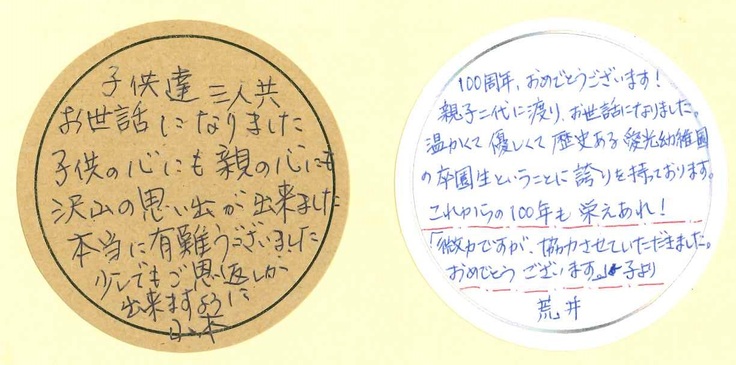 子供達 三人共
お世話になりました
子供の心にも親の心にも
沢山の思い出が出来ました
本当に有難うございました
少しでもご恩返しが
出来ますように
100周年、おめでとうございます!
親子二代に渡り、お世話になりました。
温かくて優しくて歴史ある愛光幼稚園
の卒園生ということに誇りを持っております。
これからの100年も栄えあれ!
「微力ですが、協力させていただきました。
おめでとうございます。」 子より
荒井